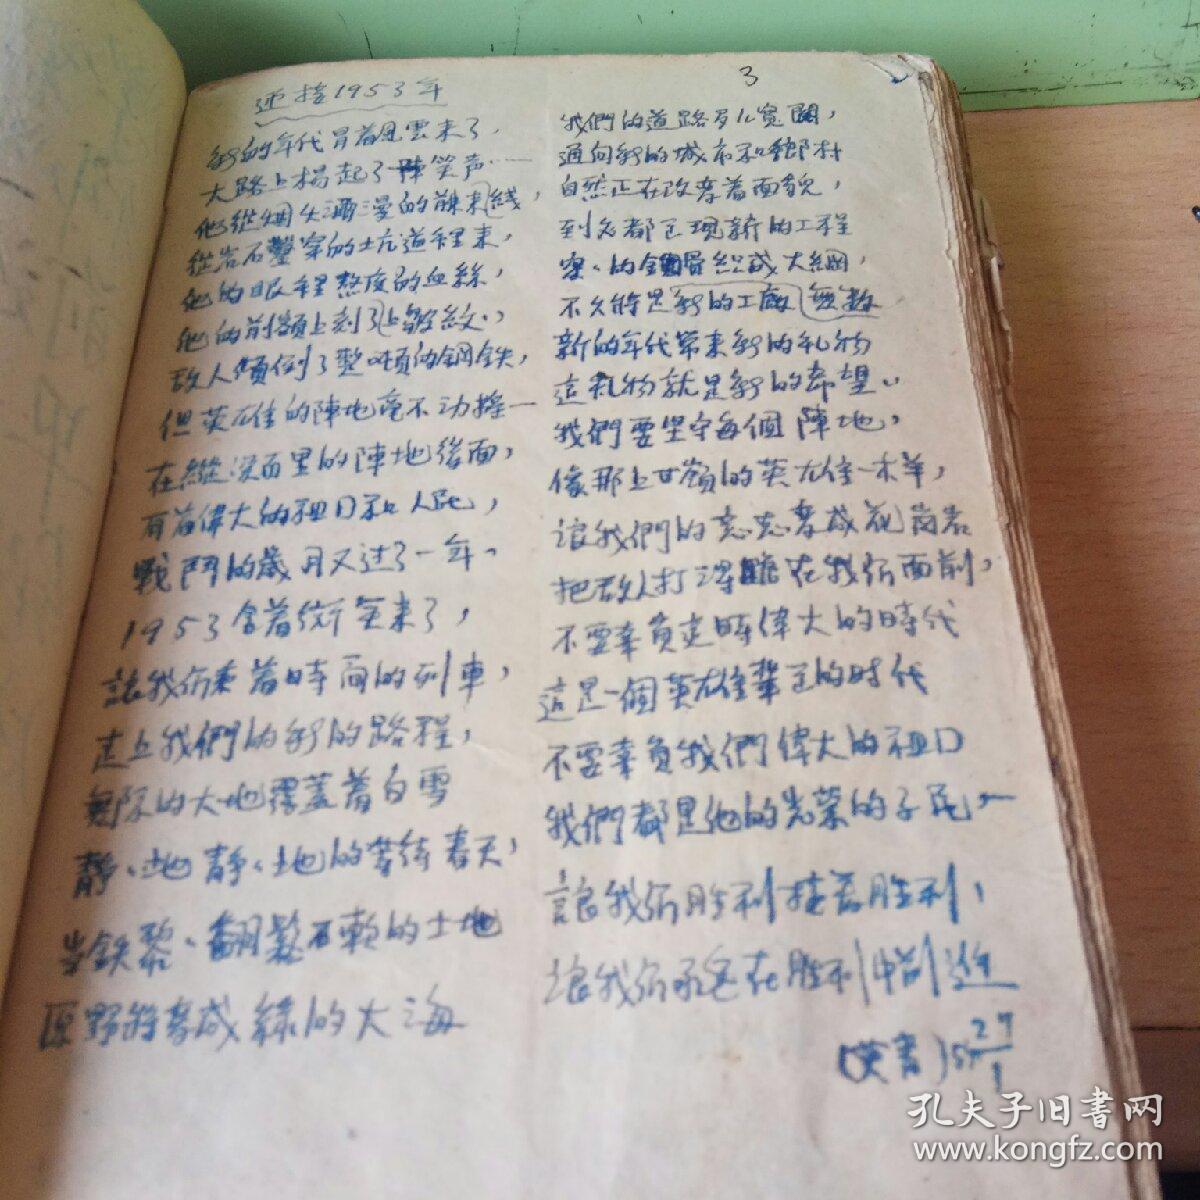 迎接1953年
3
新的年代冒着風雲来了,
大路上揚起了陣笑声……
他從烟火瀰漫的前線来,
從岩石鑿穿的坑道裡来,
他的眼裡熬夜的血絲,
他的前額上刻了上皺紋、
敌人傾倒了整噸的鋼鉄,
但英雄的陣地毫不动搖一
在縱深面里的陣地後面,
有着偉大的祖囗和人民,
戰鬥的歲月又过了一年、
1953含着微笑来了,
讓我们乘着時间的列車,
走上我們的新的路程,
無际的大地覆蓋着白雪
靜、地靜、地的等待春天,
当鉄犂、翻鬆石軟的土地
原野将变成綠的大海
我們的道路多么寬闊,
通向新的城市和鄉村
自然正在改变着面貌,
到处都已現新的工程
密、的鋼骨組成大網,
不久将是新的工廠無数
新的年代带来新的礼物
這礼物就是新的希望、
我們要坚守每個陣地,
像那上甘嶺的英雄一样,
讓我們的意志变成花崗岩
把敌人打得 在我们面前,
不要辜負這時偉大的時代
這是一個英雄輩立的时代
不要辜負我們偉大的祖囗
我們都是他的光荣的子民、
讓我们胜利接着胜利,
讓我们永远在胜利中前進
(英書)53 27/1
孔夫子旧書网
www.kongfz.com